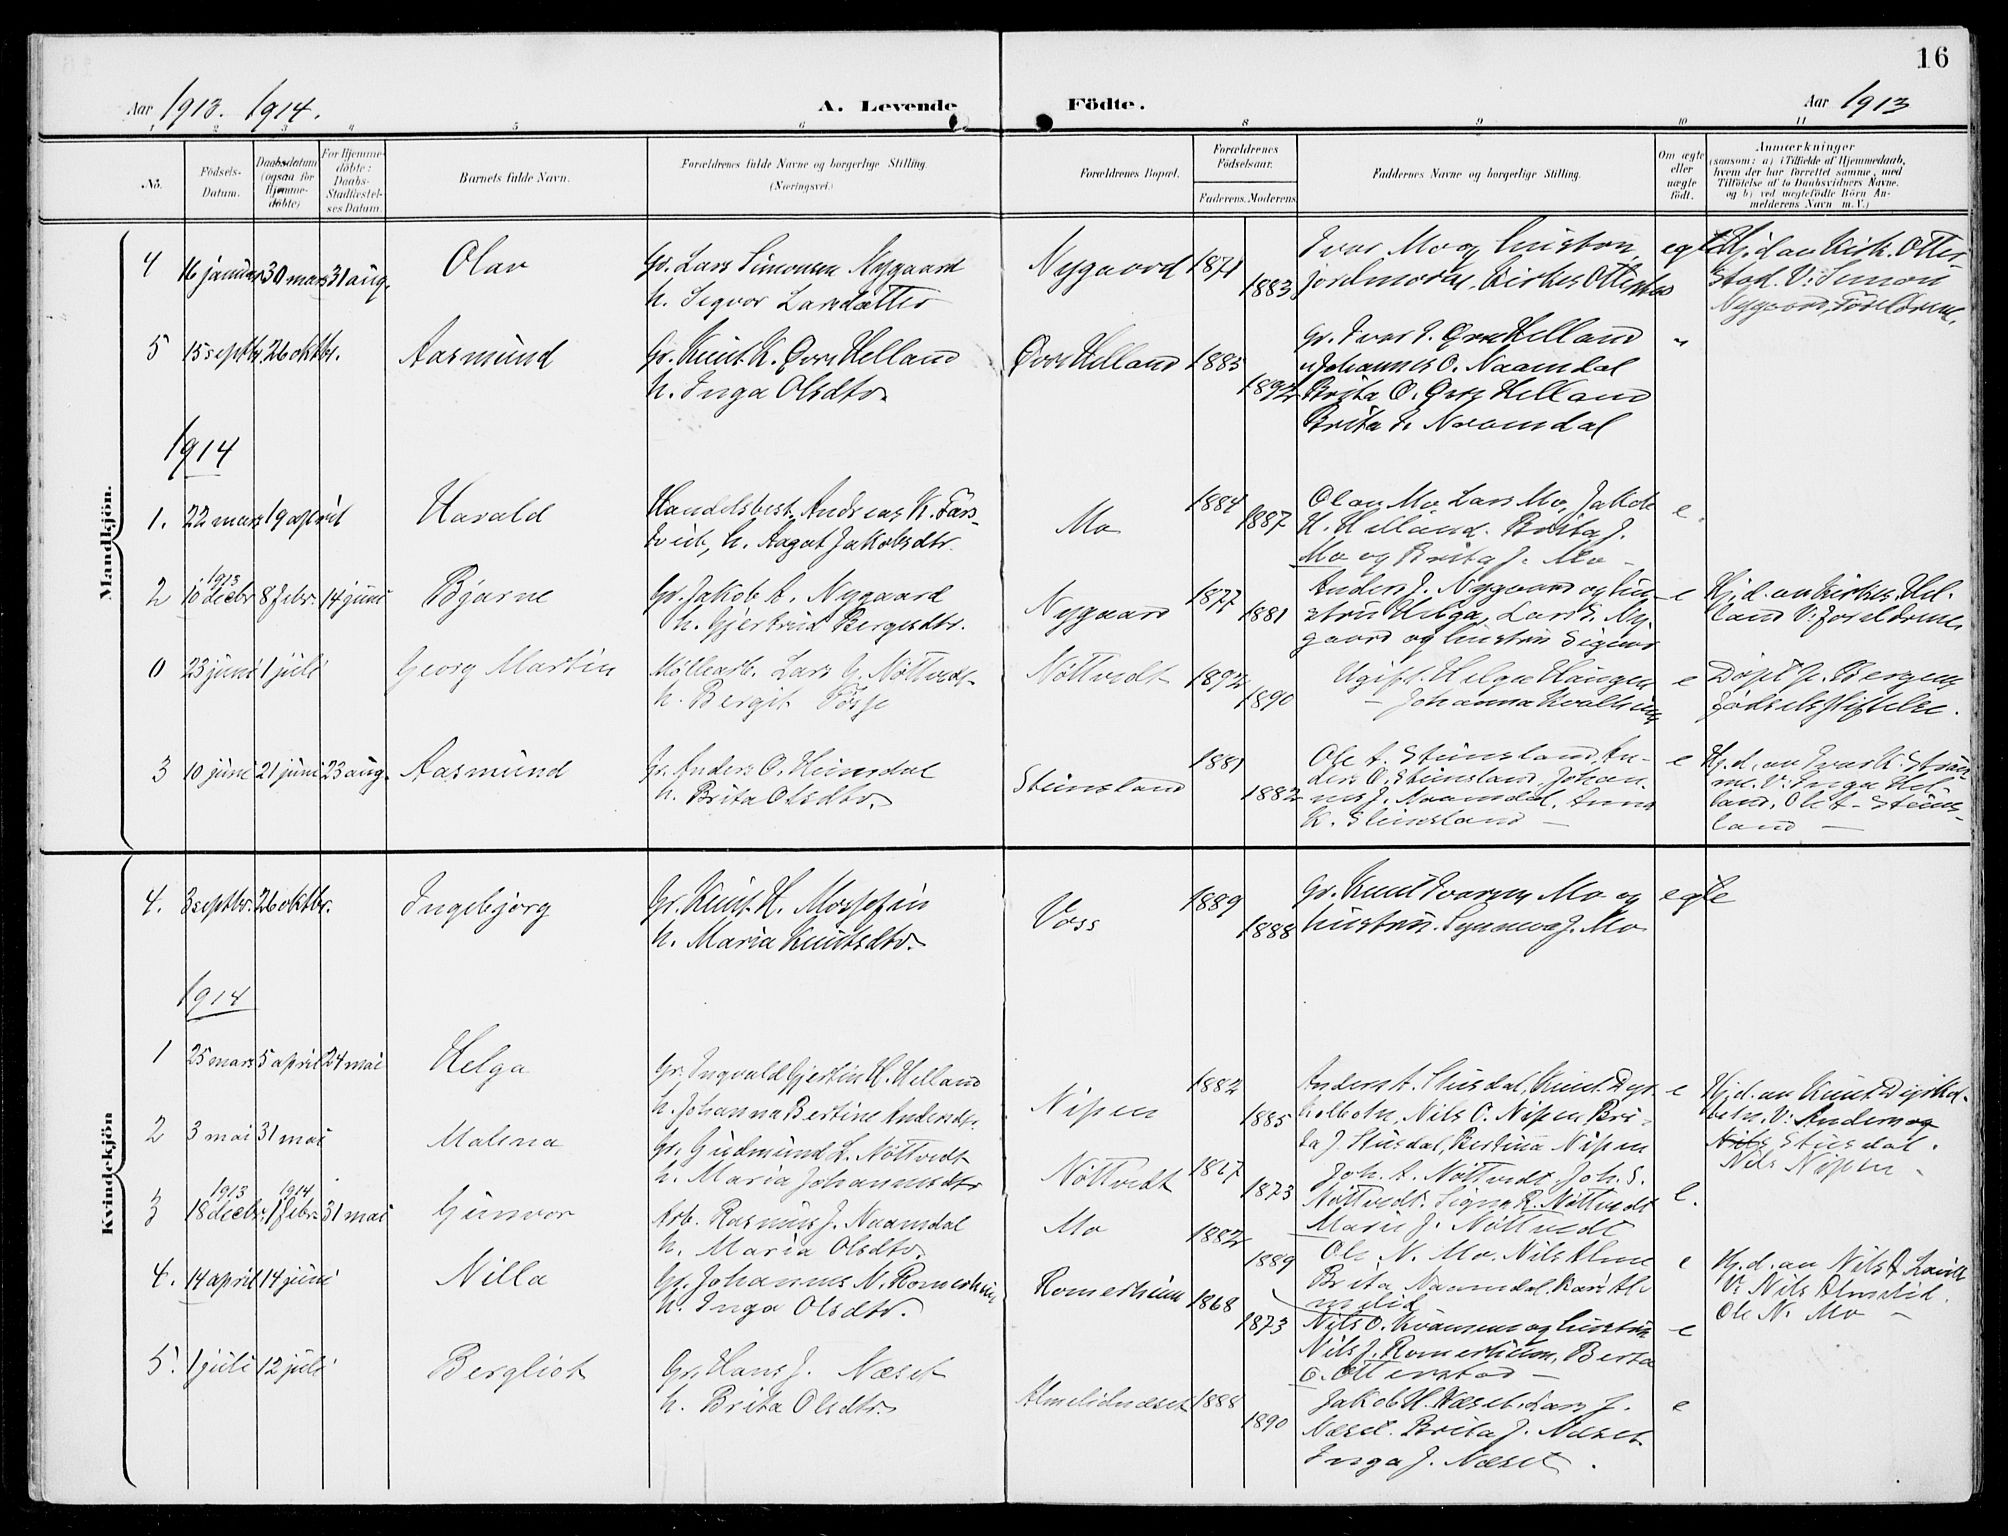 16
Aar 1913. 1914.
A. Levende
Födte.
Aar 1913
1 2 3 4 5 6 8 9 10 11
No.
Födsels-Datum.
Daabsdatum (ogsaa for Hjemme-döbte)
For Hjemme-döbte: Daabs-Stadfæstel-ses Datum.
Barnets fulde Navn.
Forældrenes fulde Navne og borgerlige Stilling.
(Næringsvei.)
Forældrenes Bopæl.
Forældrenes Födselsaar.
Faderens. Moderens.
Faddernes Navne og borgerlige Stilling.
Om ægte eller uægte födt.
Anmærkninger
(saasom: a) i Tilfælde af Hjemmedaab,
hvem der har forrettet samme, med
Tilföielse af to Daabsvidners Navne.
og b) ved uægtefödte Börn An-
melderens Navn m. V.)
Mandkjön.
4 16 januar 30 mars 31 aug. Olav
Gr. Lars Simonsen Nygaard
h. Ingvor Larsdatter
Nygaard 1871 1883
Ivar Mo og hustru,
egte
Hj. d. av Kirk. Otter-
stad. V: Simon
Nygaard, Foreldrene.
5 15 septbr. 26 oktbr. Aasmund
Gr. Knut K. Øvre Helland
h. Inga Olsdtr.
Øvre Helland 1885 1892
Gr. Ivar I. Øvre Helland
Johannes O. Naamdal
Brita O. Øvre Helland
Brita I. Naamdal
"
1914
1. 22 mars 19 april Harald
Handelsbest. Andreas K. Fars-
tveit, h. Aagot Jakobsdtr.
Mo 1884 1887
Olav Mo, Lars Mo, Jakob
H. Helland. Brita J.
Mo og Brita J. Mo -
e.
2 1913 10 decbr 8 febr. 14 juni Bjarne
Gr. Jakob A. Nygaard
h. Gjertrud Bergesdtr.
Nygaard 1877 1881
Anders J. Nygaard og hu-
stru Helga, Lars S. Ny-
gaard og hustru
e
Hj. d. av Kirkes. Hel-
land V: foreldrene
0 23 juni 1 juli Georg Martin
Møllearb. Lars G. Nöttveit
h. Bergit Fosse
Nöttvedt 1892 1890
Ugift. Helga Haugen
- Johanna
e
Døpt p. Bergens
fødselsstiftelse.
3 10 juni 21 juni 23 aug. Aasmund
Gr. Anders O. Heimdal
h. Brita Olsdtr.
Steinsland 1881 1882
Ole A. Steinsland, An-
ders O. Steinsland, Johan-
nes J. Naamdal, Anna
K. Steinsland -
e
Hj. d. av Ivar K.
V: Inga Hel-
land, Ole A. Steins-
land -
Kvindekjön
4. 3 septbr. 26 oktbr. Ingebjørg
Gr. Knut H. Mossefin
h. Maria Knutsdtr.
Voss 1889 1888
Gr. Knut Ivarsen Mo og
hustru Synneva J. Mo
egte
1914
1 25 mars 5 april 24 mai Helga
Gr. Ingvald Gjertin H. Helland
h. Johanna Bertine Andersdtr.
Nipen 1882 1885
Anders A. Stusdal, Knut Dyr-
kolbotn, Nils O. Nipen Bri-
ta J. Stusdal, Bertina Nipen
e
Hj. d. av Knut Dyrkol-
botn, V: Anders og
Nils Stusdal.
Nils Nipen -
2 3 mai 31 mai Malena
Gr. Gudmund L. Nöttvedt
h. Maria Johannesdtr
Nöttvedt 1867 1873
Joh. A. Nöttvedt Joh. S.
Nöttvedt. Signe R. Nöttvedt
Mari J. Nöttvedt
e.
3 1913 18 decbr. 1914 1 febr. 31 mai Gunvor
Arb. Rasmus J. Naamdal
h. Maria Olsdtr.
Mo 1882 1889
Ole N. Mo, Nils Alme
Brita Naamdal, Kari Al-
melid
e
Hj. d. av Nils
V: Nils Almelid.
Ole N. Mo -
4. 14 april 14 juni Nilla
Gr. Johannes N. Romerheim
h. Inga Olsdtr.
Romerheim 1868 1873
Nils O. Kvamme og hustru
Nils J. Romerheim, Berta
O. Otterstad -
e
5. 1 juli 12 juli Bergliot
Gr. Hans J. Næset
h. Brita Olsdtr.
Almelidnæset 1888 1890
Jakob H. Næset. Lars J.
Næset. Brita J. Næset
Inga J. Næset.
e